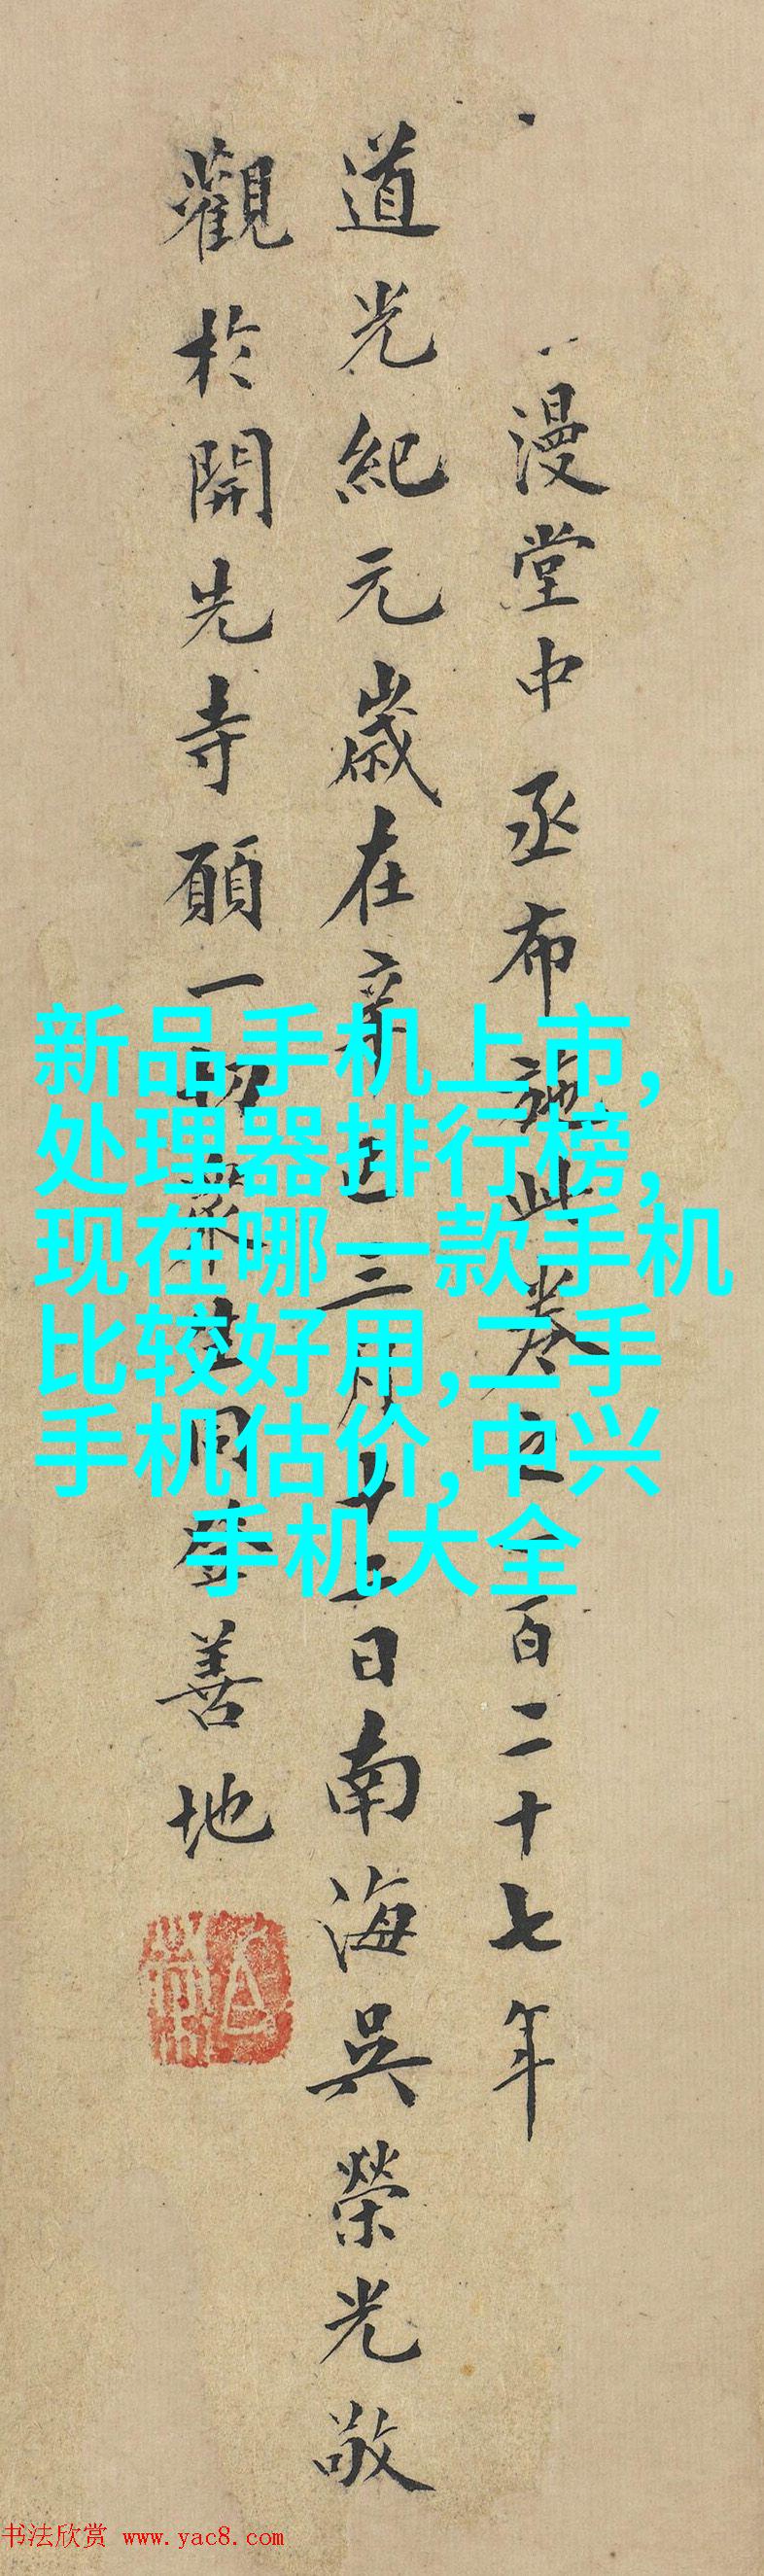 漫堂中丞布施此卷之一百二十七年
道光紀元歲在辛巳三月十二日南海吳榮光敬
觀於開先寺願一切眾生同登善地
新品手机上市,
处理器排行榜,
现在哪一款手机
比较好用,二手
手机估价,中兴
手机大全
书法欣赏 www.yac8.com